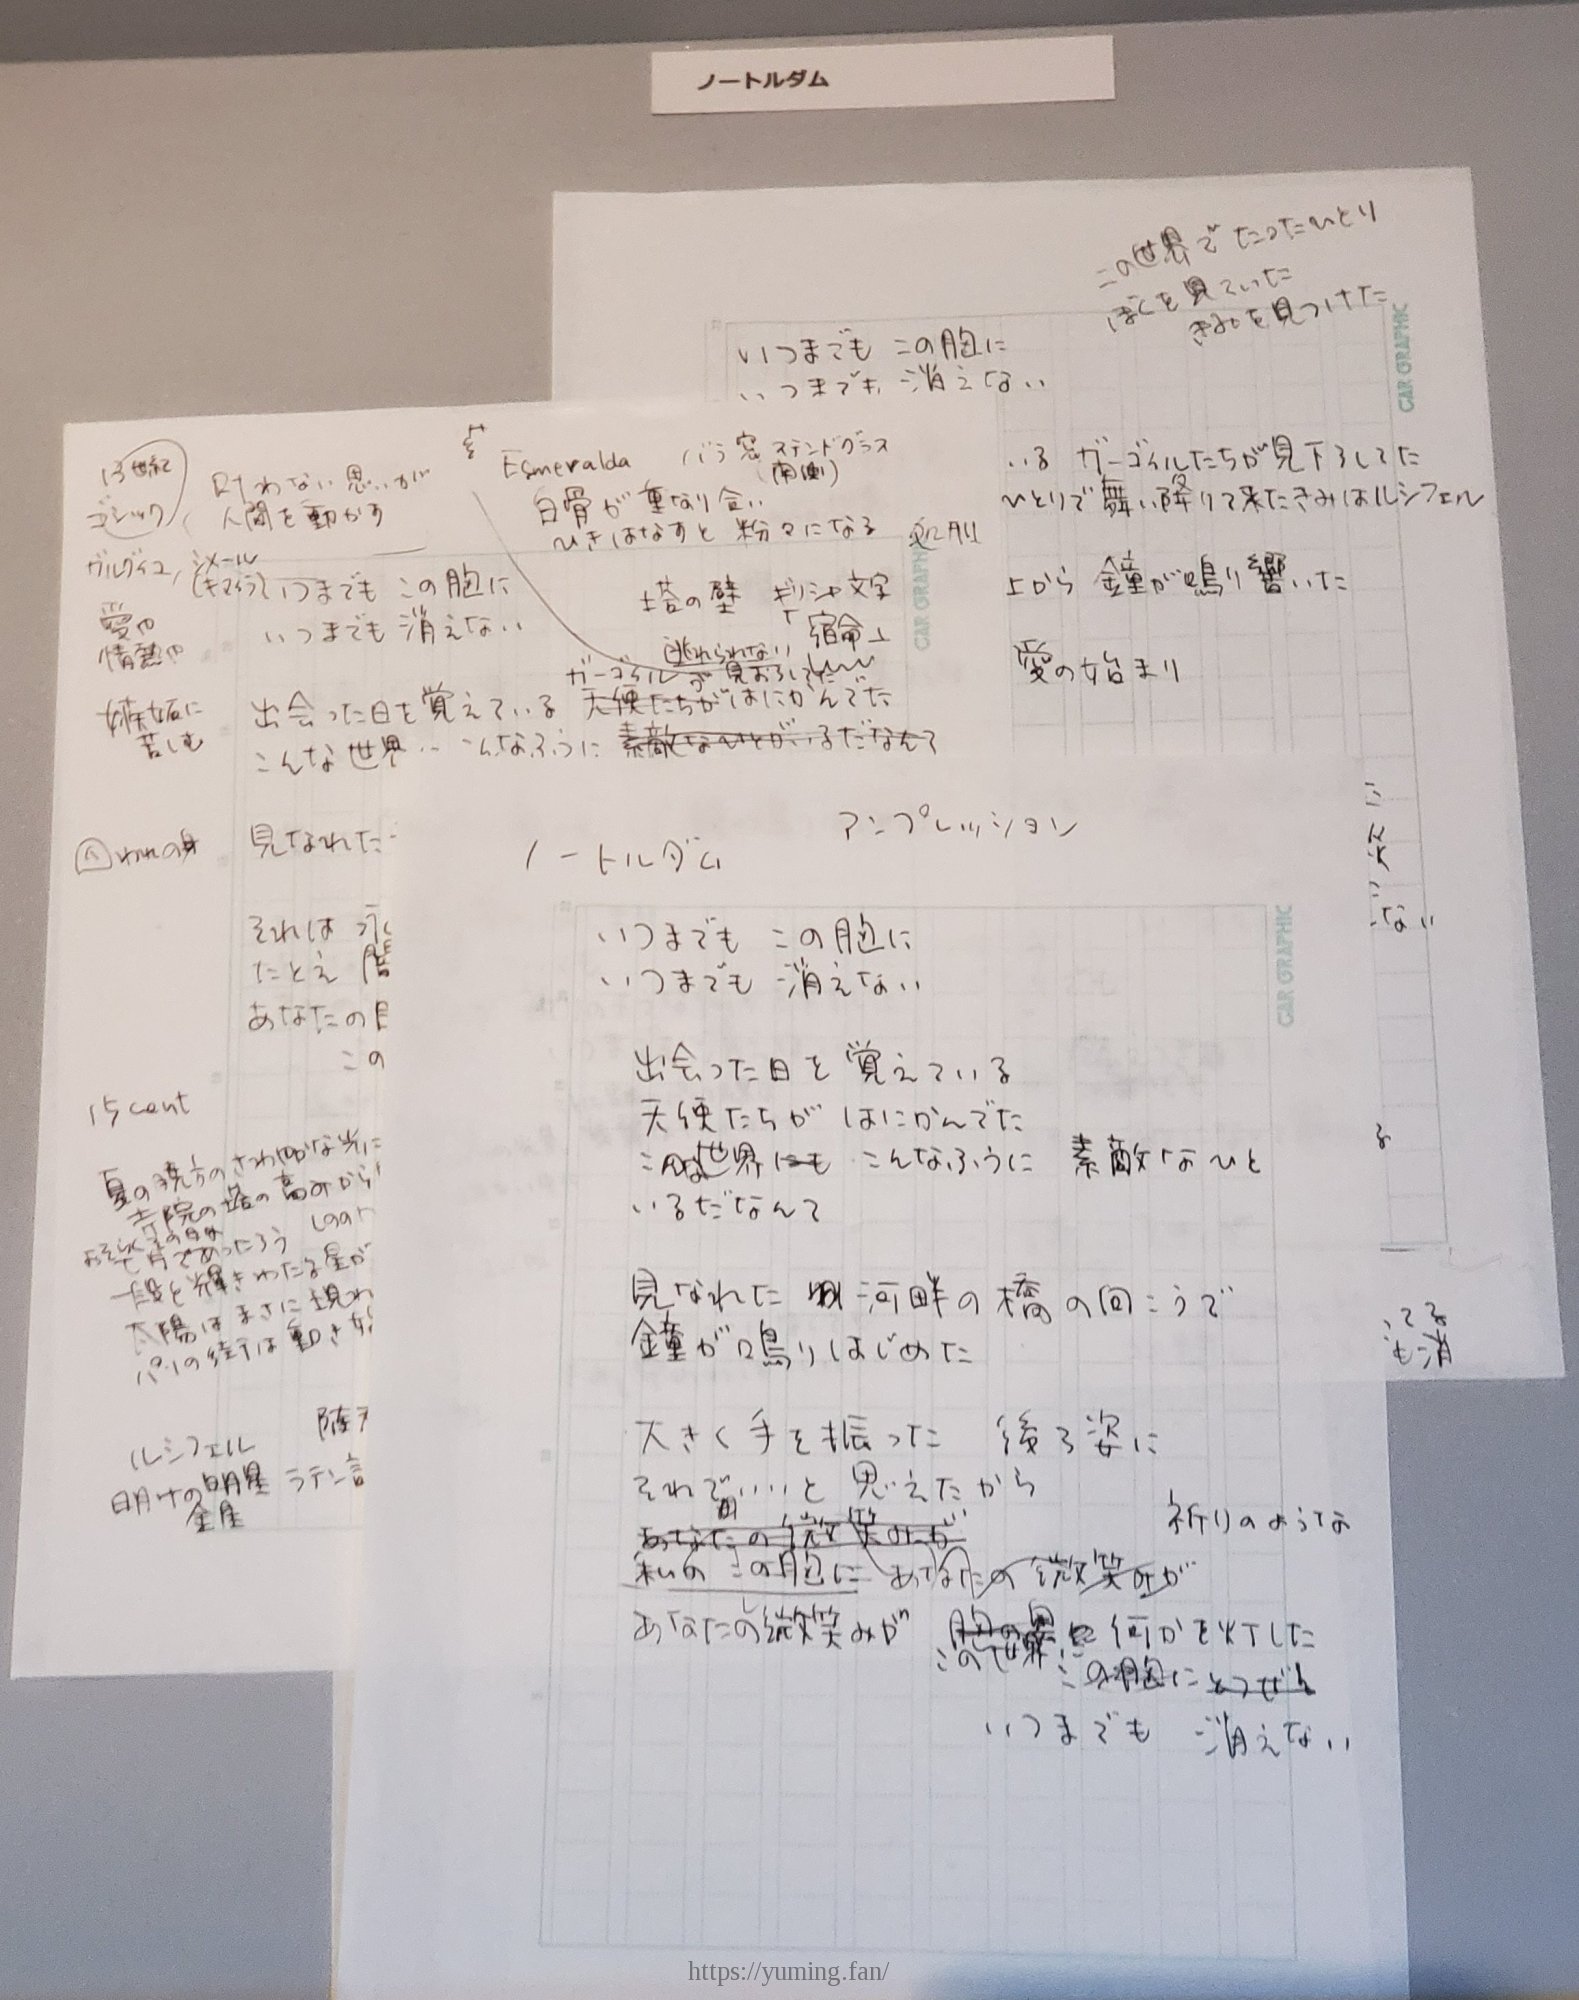 ノートルダム
この世界でたったひとり
ぼくを見ていた
きみを見つけた
CAR GRAPHIC
いつまでも この胸に
いつまでも 消えない
いる ガーゴイルたちが見下ろしてた
ひとりで舞い降りて来たきみはルシフェル
上から 鐘が鳴り響いた
愛の始まり
炎
ない
る
てる
も消
13世紀
ゴシック
叶わない思いが
人間を動かす
Esmeralda
バラ窓 ステンドグラス
(南側)
白骨が重なり合い
ひきはなすと 粉々になる
処刑
シメール
(キマイラ)
CAR GRAPHIC
愛や
情熱や
嫉妬に
苦しむ
いつまでも この胸に
いつまでも 消えない
塔の壁 ギリシャ文字
「宿命」
逃れられない
ガーゴイルが見おろしてた
出会った日を覚えている 天使たちがはにかんでた
こんな世界 こんなふうに 素敵なひとがいるだなんて
われの身
見なれた
それは
たとえ
あなたの
この
15 cent
夏の
寺院の塔の高みから
月であったろう
一段と輝きわたる星が
太陽はまさに現わ
パリの
ルシフェル
明けの明星 ラテン
金星
アンプレッション
ノートルダム
CAR GRAPHIC
いつまでも この胸に
いつまでも 消えない
出会った日を覚えている
天使たちが はにかんでた
こんな世界にも こんなふうに 素敵なひと
いるだなんて
見なれた 河畔の橋の向こうで
鐘が鳴りはじめた
大きく手を振った 後ろ姿に
それでいいと 思えたから
祈りのような
あなたの微笑みが
私の この胸に あなたの微笑みが
あなたの微笑みが 胸の奥に何かを灯した
この世界に
この胸にとつぜん
いつまでも 消えない
https://yuming.fan/